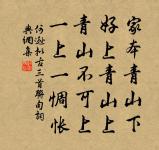 家本青山下
好上青山上
青山不可上
一上一惆悵
何遜拟古三首聯句詞
典網集